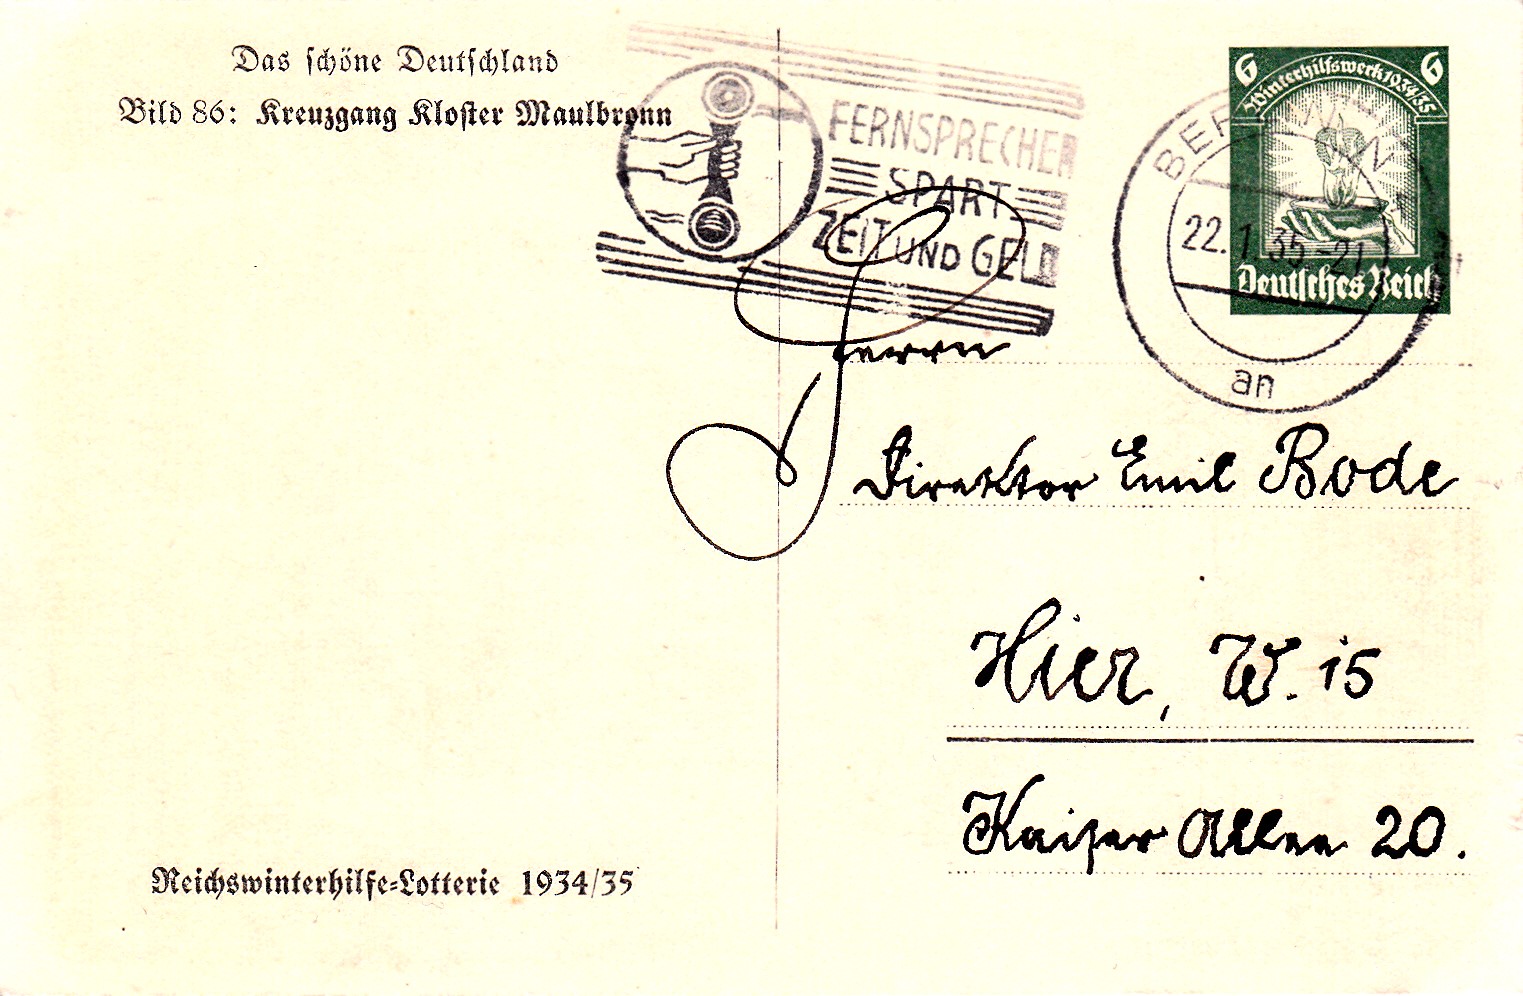 Das schöne Deutschland
Bild 86: Kreuzgang Kloster Maulbronn
FERNSPRECHER
SPART
ZEIT UND GELD
6 6
Winterhilfswerk 1934/35
Deutsches Reich
22.1.35-21
an
Herrn
Direktor Emil Bode
Hier, W. 15
Kaiser Allee 20.
Reichswinterhilfe-Lotterie 1934/35